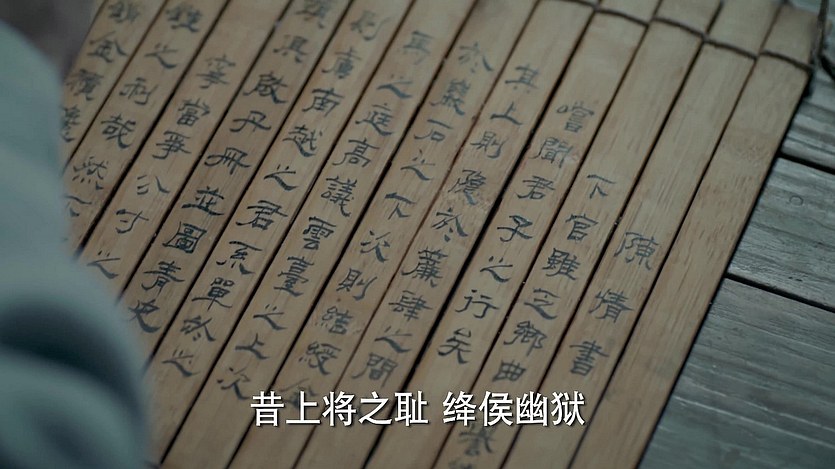 陳情書
下官雖乏鄉曲
嘗聞君子之行矣
其上則隱於簾肆之間
於巖石之下次則結綬金
馬之庭高議雲臺之上次
則虜南越之君系單於之
頸俱啟丹冊並圖青史
寧當爭分寸之
錐之利哉然
金積
昔上将之耻 绛侯幽狱